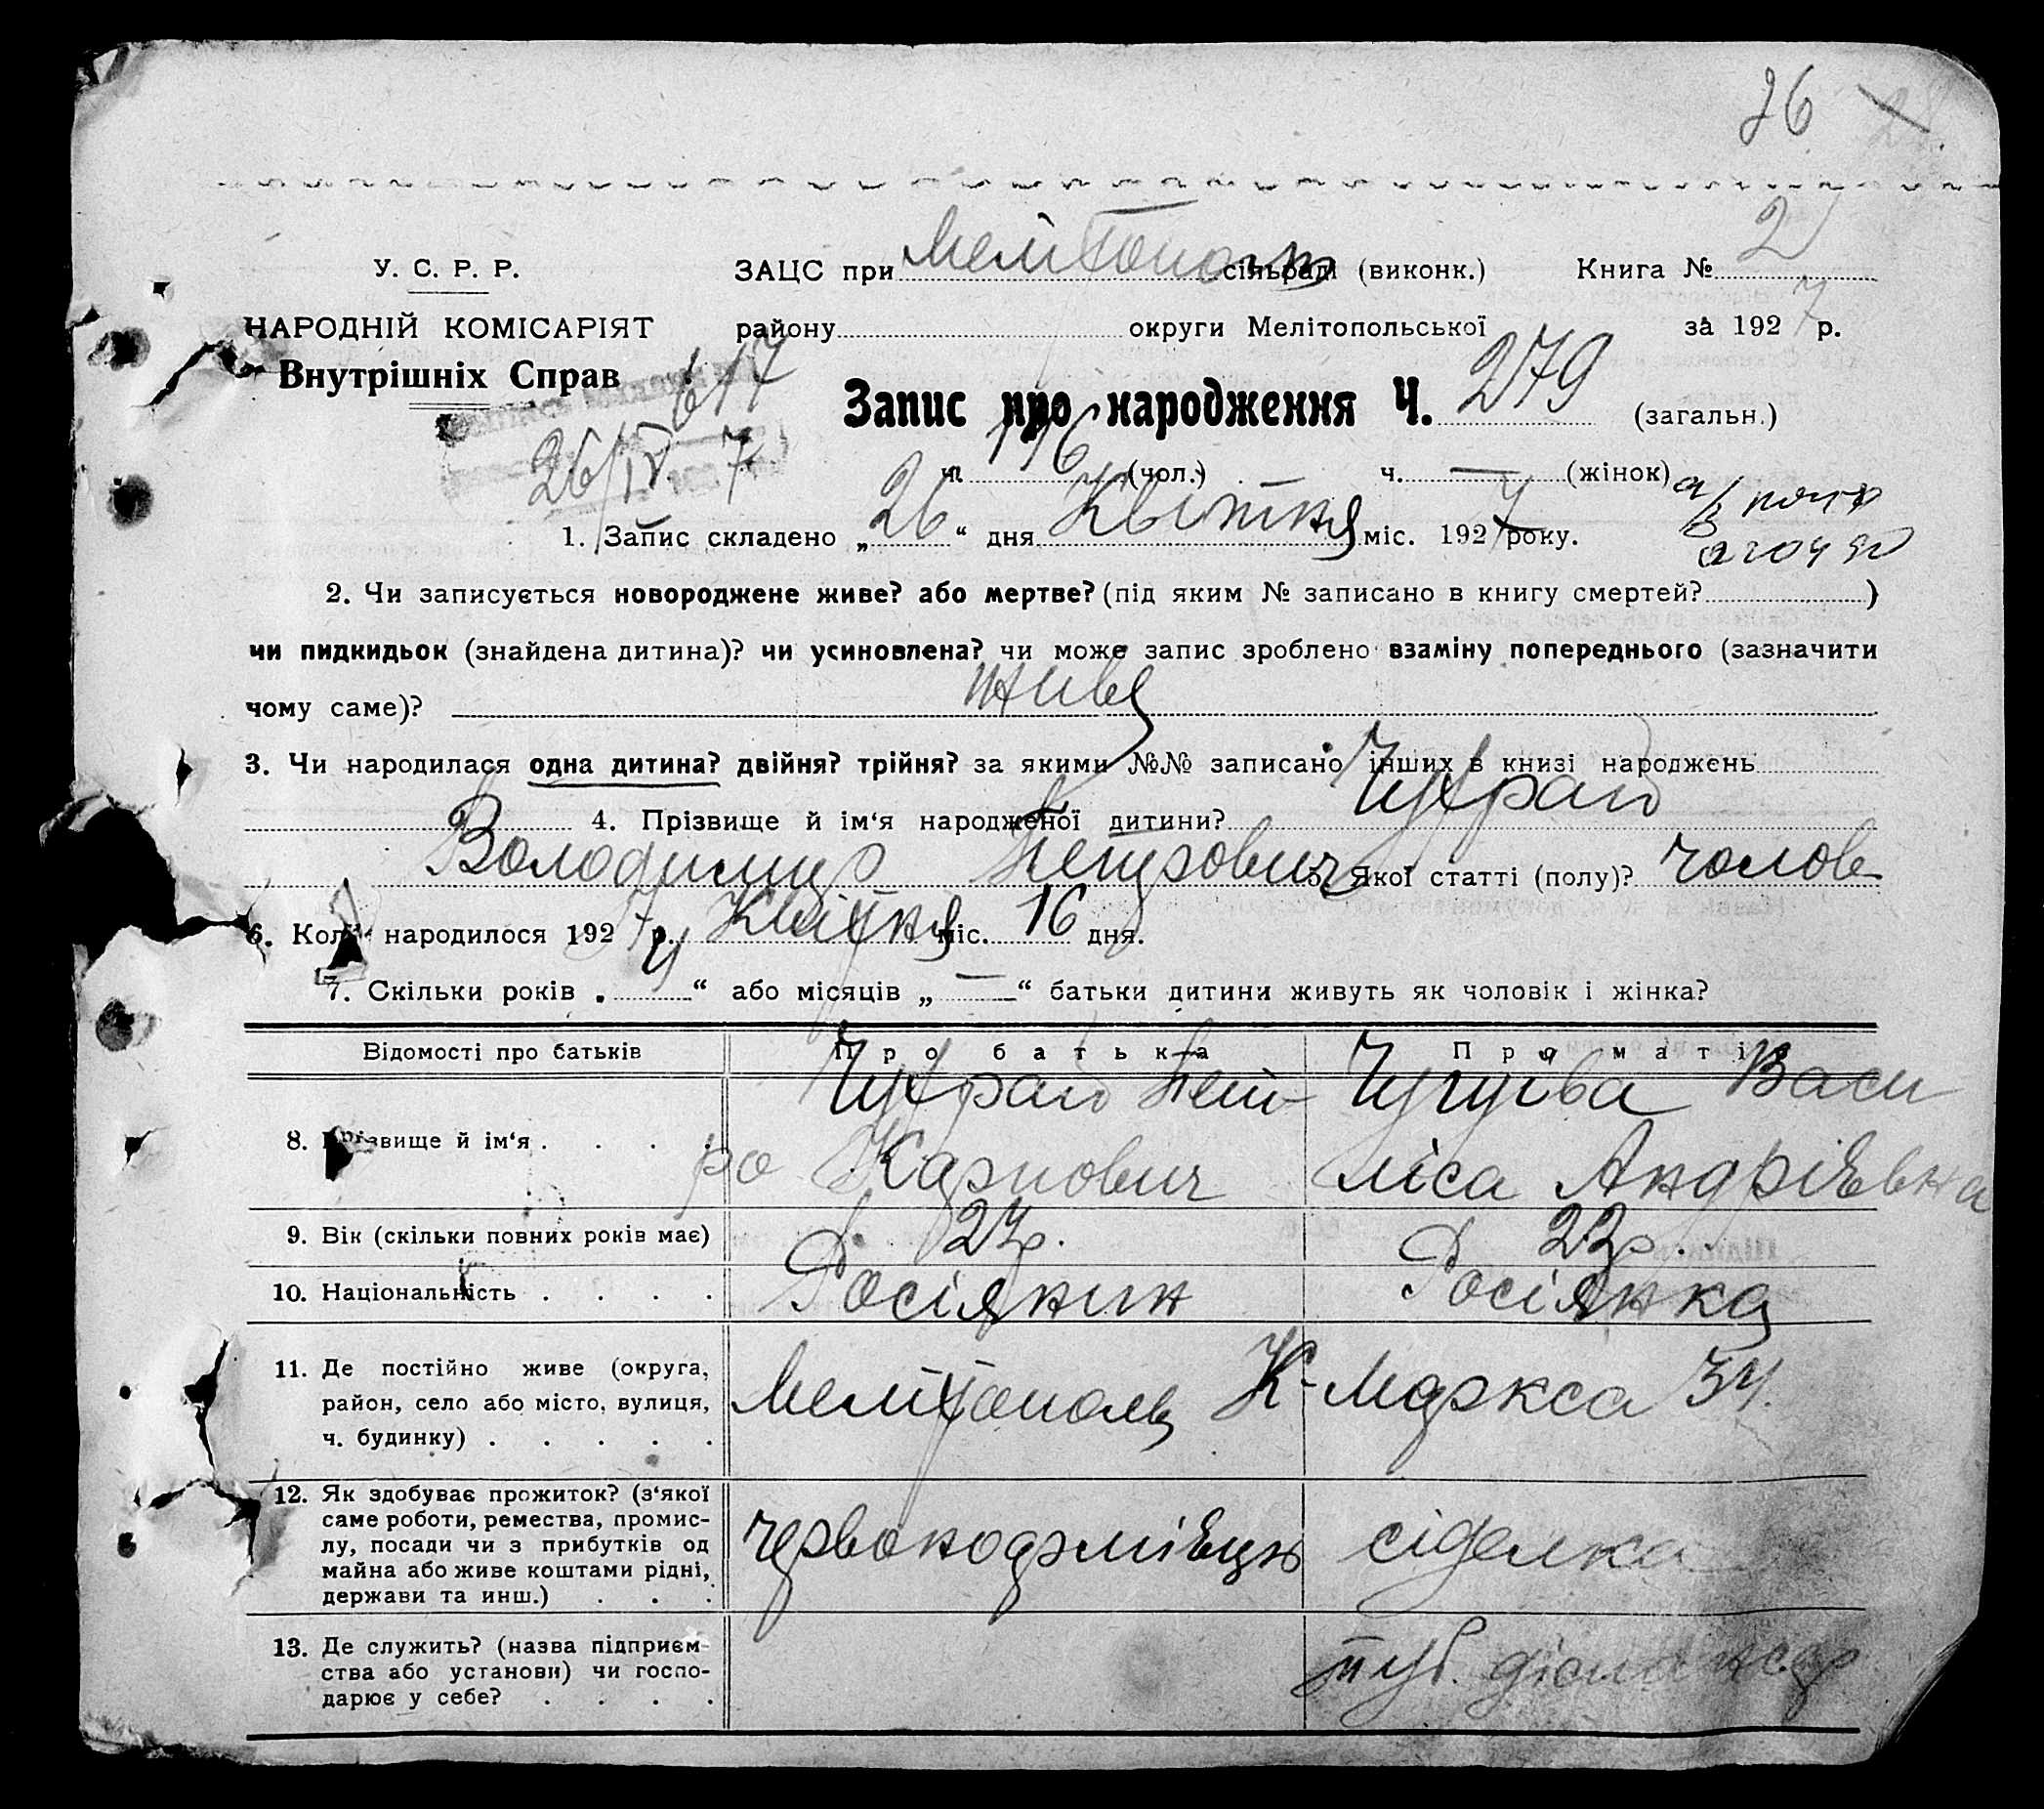 26
У. С. Р. Р. ЗАЦС при Мелітополь сільраді (виконк.) Книга № 2
НАРОДНІЙ КОМІСАРІЯТ району округи Мелітопольської за 1927 р.
Внутрішніх Справ 617
Запис про народження Ч. 279 (загальн.)
26/IV 7 ч. 146 (чол.) ч. — (жінок)
1. Запис складено „26“ дня Квітня міс. 1927 року.
2. Чи записується новороджене живе? або мертве? (під яким № записано в книгу смертей? )
чи пидкидьок (знайдена дитина)? чи усиновлена? чи може запис зроблено взаміну попереднього (зазначити
чому саме)? живе
3. Чи народилася одна дитина? двійня? трійня? за якими №№ записано інших в книзі народжень
4. Прізвище й ім‘я народженої дитини? Чухрай
Володимир Петрович 5. Якої статті (полу)? чолов
6. Коли народилося 1927 р. Квітня міс. 16 дня.
7. Скільки років „4“ або місяців „—“ батьки дитини живуть як чоловік і жінка?
Відомості про батьків Про батька Про матір
8. Прізвище й ім‘я . . . . Чухрай Пет- Чугуєва Васи
ро Карпович ліса Андріѣвна
9. Вік (скільки повних років має) 24р. 22р.
10. Національність . . . . Росіянин Росіянка
11. Де постійно живе (округа,
район, село або місто, вулиця, Мелітополь К-Маркса 34.
ч. будинку) . . . . .
12. Як здобуває прожиток? (з‘якої
саме роботи, ремества, промис-
лу, посади чи з прибутків од червоноарміѣць сіделка
майна або живе коштами рідні,
держави та инш.) . . .
13. Де служить? (назва підприєм-
ства або установи) чи госпо-
дарює у себе? . . . .